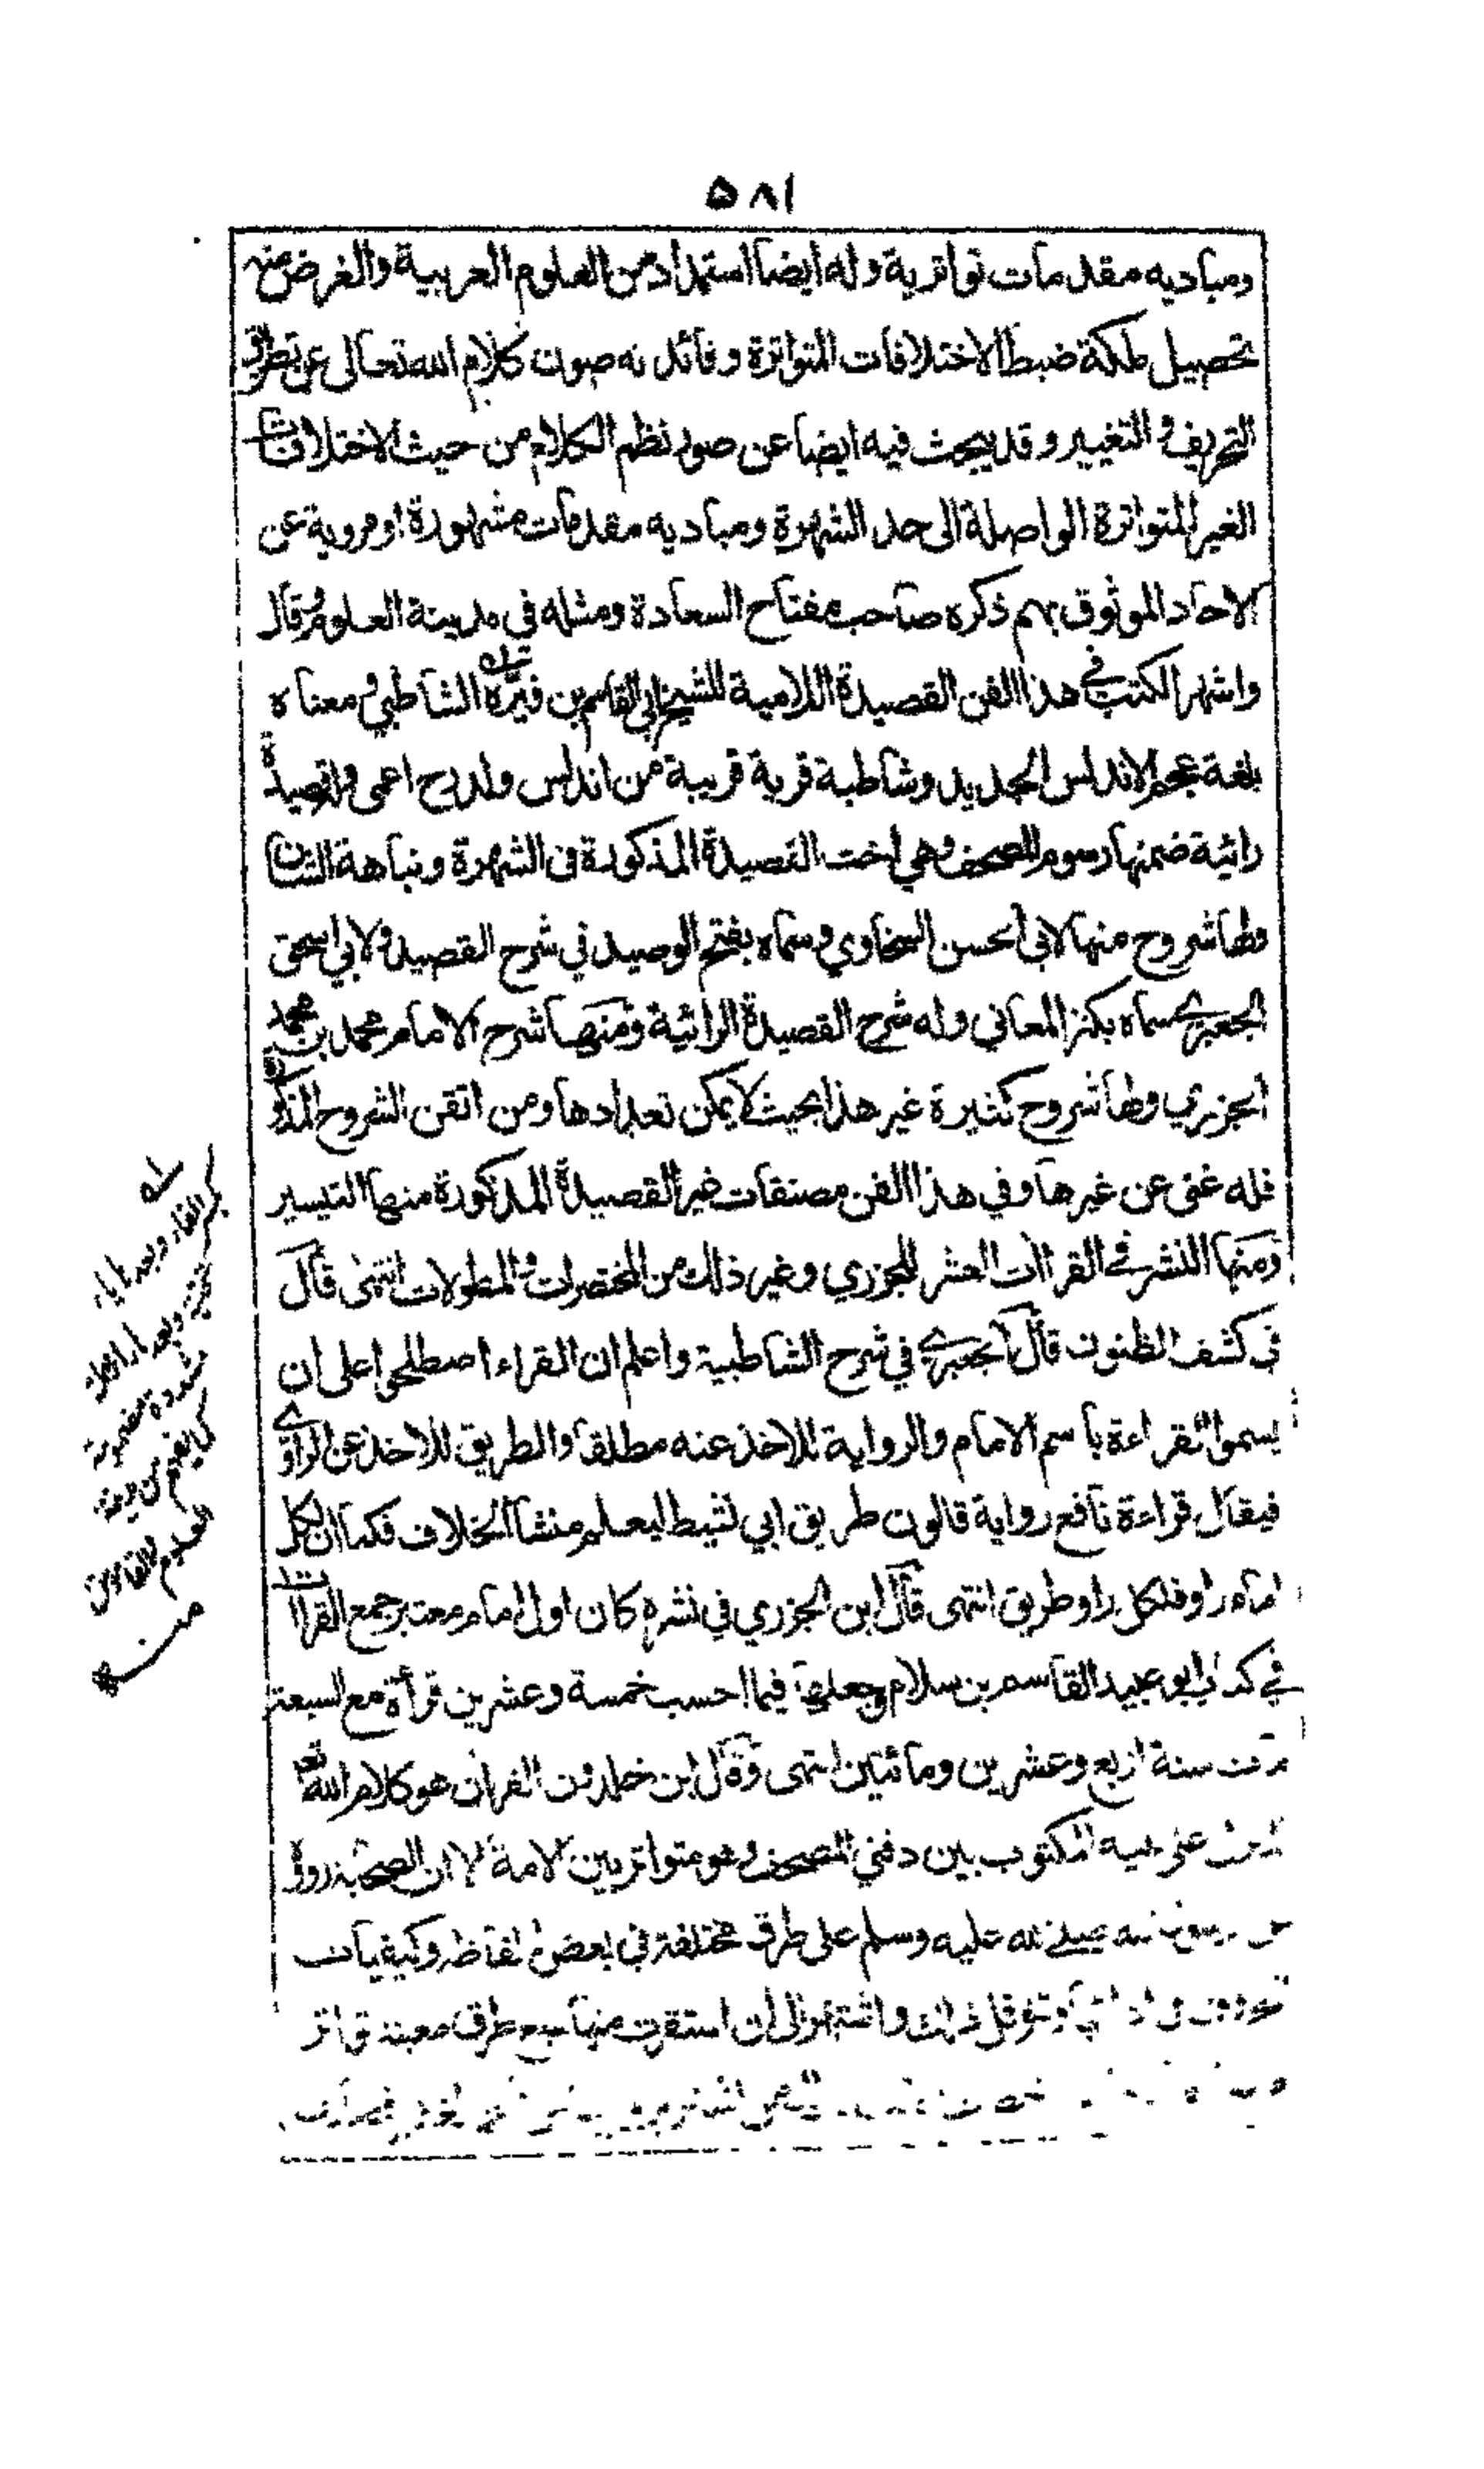 ٥٨١
ومباديه مقدمات تواترية وله ايضا استمداد من العلوم العربية والغرض منه
تحصيل ملكة ضبط الاختلافات المتواترة وفائدته صون كلام الله تعالى عن تطرق
التحريف والتغيير وقد يبحث فيه ايضا عن صور نظم الكلام من حيث الاختلافات
الغير المتواترة الواصلة الى حد الشهرة ومباديه مقدمات مشهورة او مروية عن
الاحاد الموثوق بهم ذكره صاحب مفتاح السعادة ومثله في مدينة العلوم قال
واشهر الكتب في هذا الفن القصيدة اللامية للشيخ ابي القاسم بن فيره الشاطبي ومعناه
بلغة عجم الاندلس الحديد وشاطبة قرية قريبة من اندلس ولد بح اعمى وله قصيدة
رائية ضمنها رسوم المصحف وهي اخت القصيدة المذكورة في الشهرة ونباهة الشان
ولها شروح منها لابي الحسن السخاوي وسماه بفتح الوصيد في شرح القصيد ولابي اسحق
الجعبري سماه بكنز المعاني وله شرح القصيدة الرائية ومنها شرح الامام محمد بن محمد
الجزري ولها شروح كثيرة غير هذا بحيث لا يمكن تعدادها ومن اتقن الشروح المذكورة
فله غنى عن غيرها وفي هذا الفن مصنفات غير القصيدة المذكورة منها التيسير
ومنها النشر في القراات العشر للجزري وغير ذلك من المختصرات والمطولات انتهى قال
في كشف الظنون قال الجعبري في شرح الشاطبية واعلم ان القراء اصطلحوا على ان
يسموا القراءة باسم الامام والرواية للاخذ عنه مطلقا والطريق للاخذ عن الراوي
فيقال قراءة نافع رواية قالون طريق ابي نشيط ليعلم منشأ الخلاف فكما ان لكل
امام راو فلكل راو طريق انتهى قال ابن الجزري في نشره كان اول امام معتبر جمع القراات
في كتاب ابو عبيد القاسم بن سلام وجعلها فيما احسب خمسة وعشرين قرأة مع السبعة
مات سنة اربع وعشرين ومائتين انتهى وقال ابن خلدون القران هو كلام الله
المنزل على نبيه المكتوب بين دفتي المصحف وهو متواتر بين الامة الا ان الصحابة رووه
عن رسول الله صلى الله عليه وسلم على طرق مختلفة في بعض الفاظه وكيفيات
الحروف في ادائها وتنوقل ذلك واشتهر الى ان استقرت منها سبع طرق معينة تواتر
منه